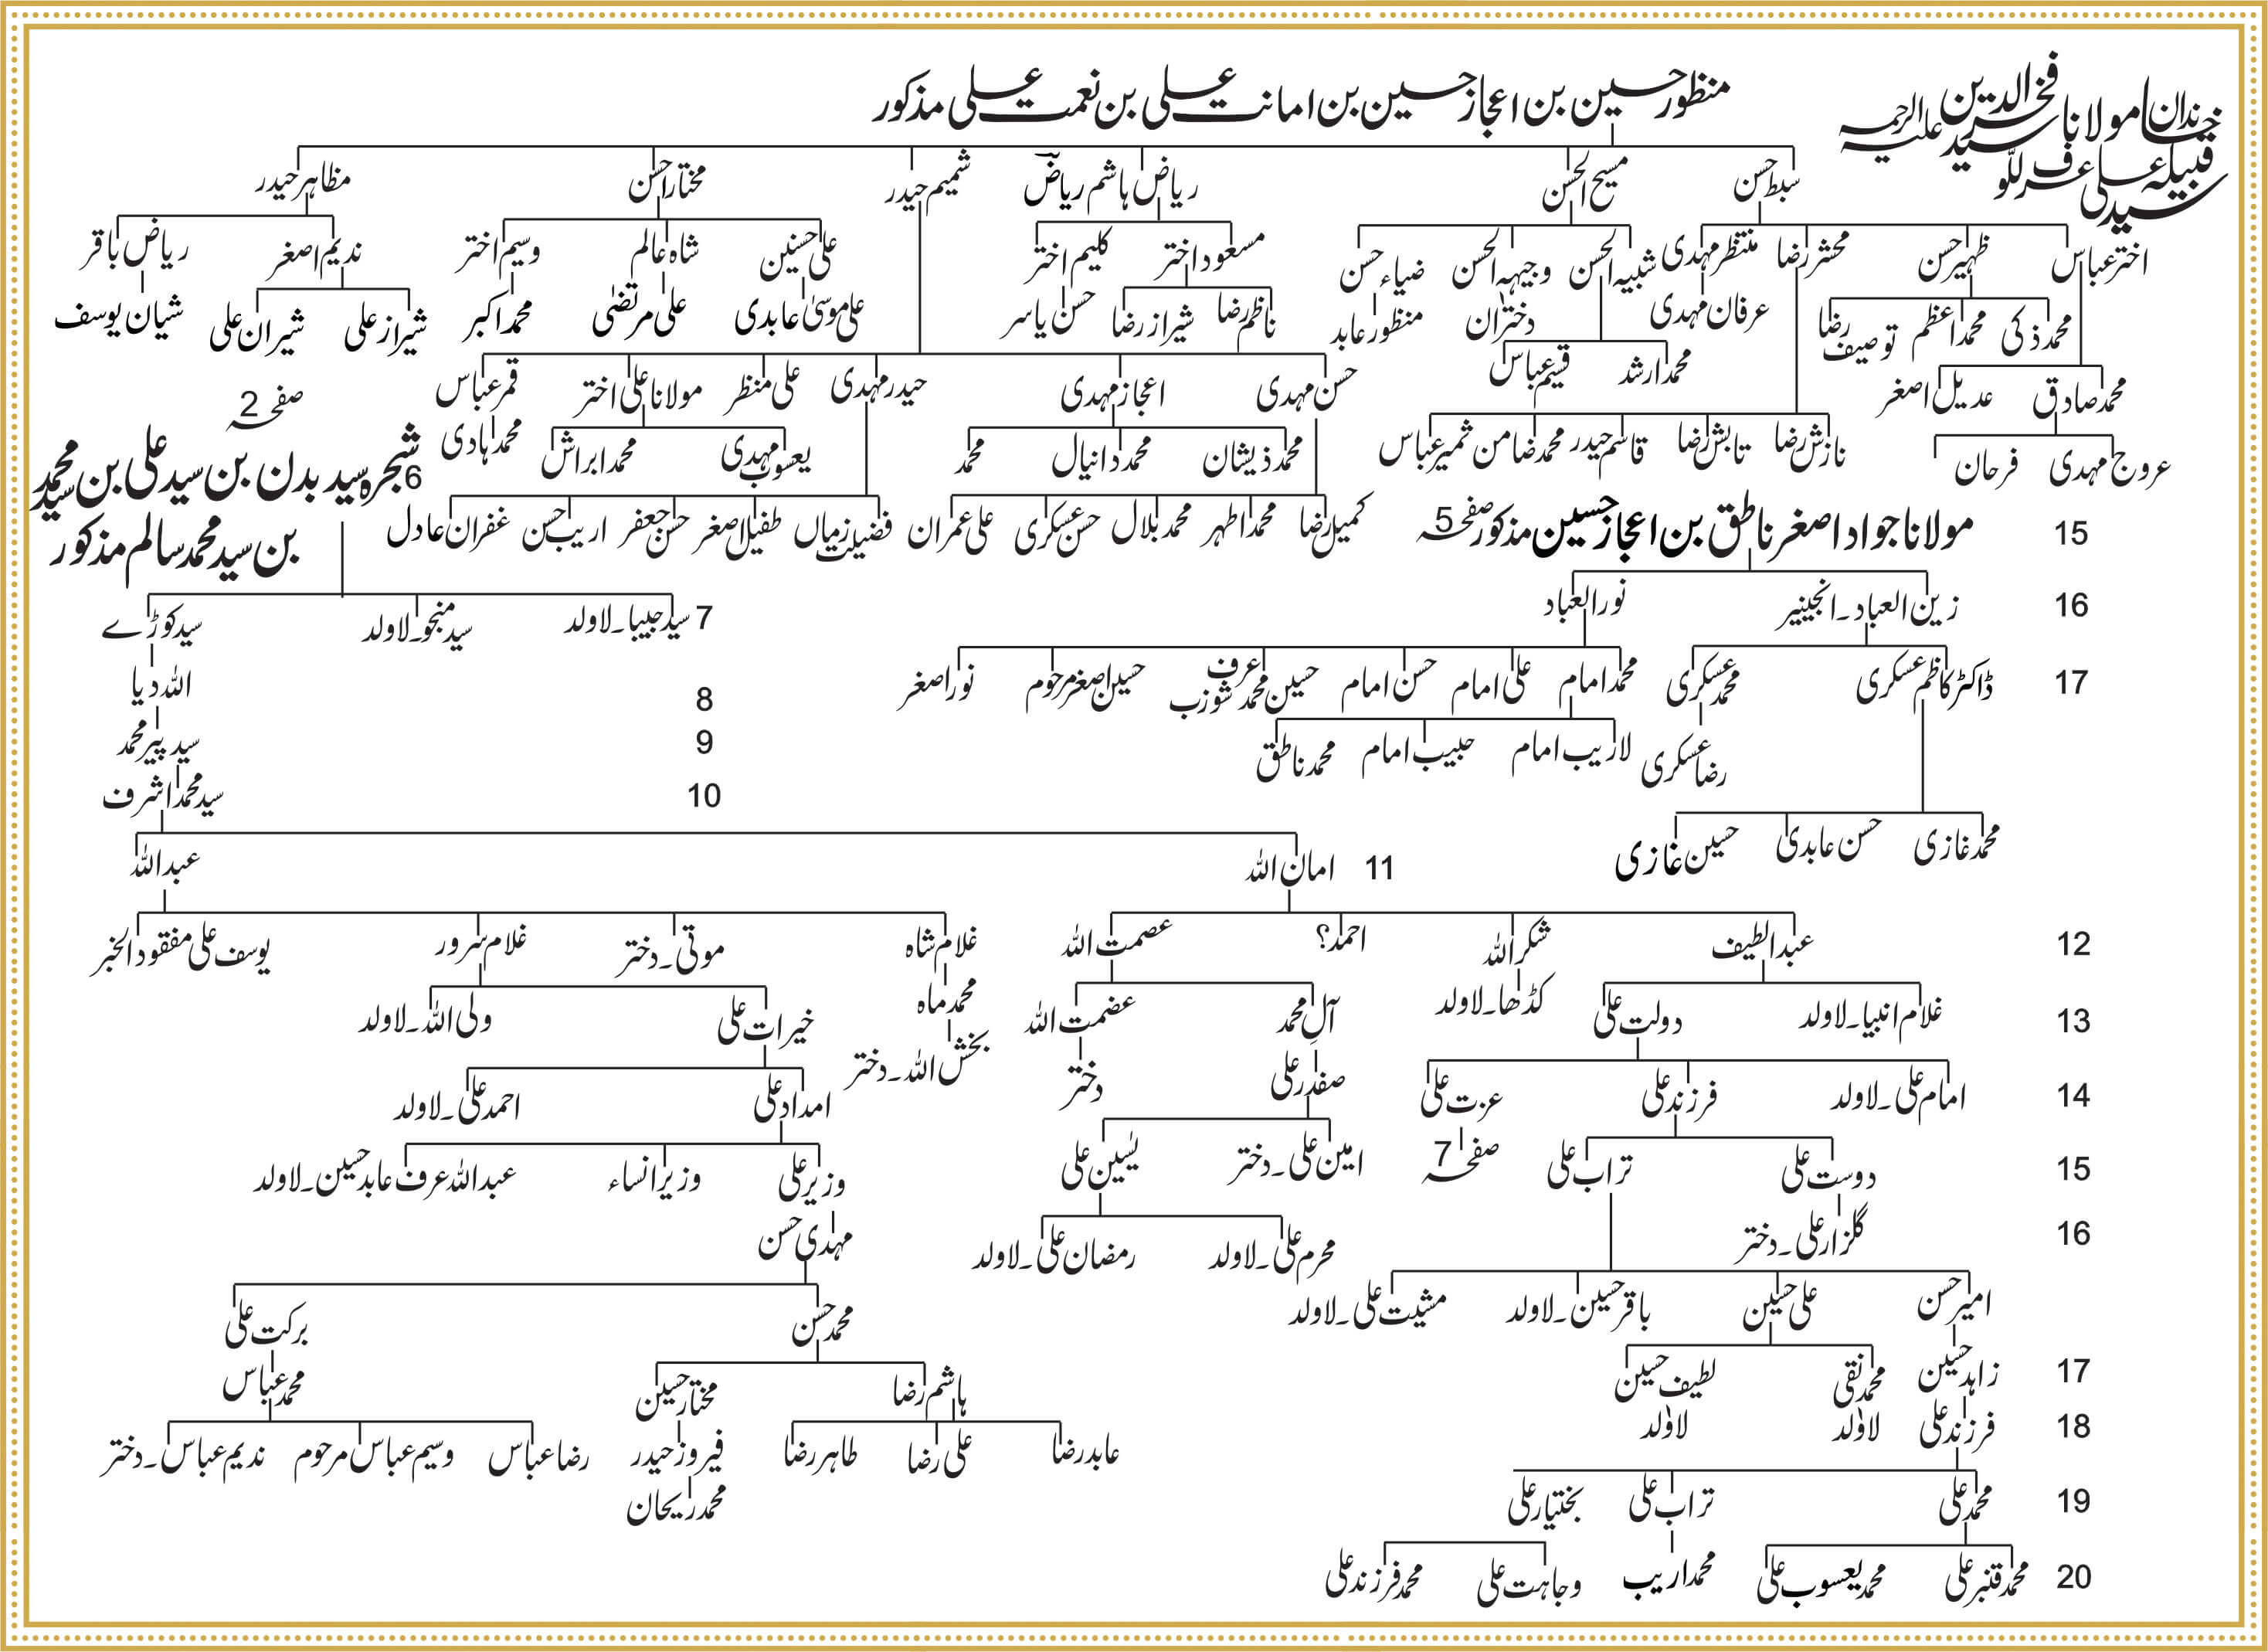 خاندان مولانا سید فخرالدین علیہ الرحمہ
قبیلہ سید علی عرف للّو
منظور حسین بن اعجاز حسین بن امانت علی بن نعمت علی مذکور
سبط حسن مسیح الحسن ریاض ہاشم ریاضؔ شمیم حیدر مختار حسن مظاہر حیدر
اختر عباس ظہیر حسن محشر رضا منتظر مہدی شبیہ الحسن وجیہہ الحسن ضیاء حسن مسعود اختر کلیم اختر علی حسنین شاہ عالم وسیم اختر ندیم اصغر ریاض باقر
محمد ذکی محمد اعظم توصیف رضا عرفان مہدی دختران منظور عابد ناظم رضا شیراز رضا حسن یاسر علی موسیٰ عابدی علی مرتضیٰ محمد اکبر شیراز علی شیران علی شیان یوسف
محمد ارشد قسیم عباس
محمد صادق عدیل اصغر حسن مہدی اعجاز مہدی حیدر مہدی علی منظر مولانا علی اختر قمر عباس
صفحہ 2
عروج مہدی فرحان نازش رضا تابش رضا قاسم حیدر محمد ضامن ثمیر عباس محمد ذیشان محمد دانیال محمد یعسوب مہدی محمد ابراش محمد ہادی
6 شجرہ سید بدن بن سید علی بن سید محمد
بن سید محمد سالم مذکور
کمیل رضا محمد اطہر محمد بلال حسن عسکری علی عمران فضیلت زماں طفیل اصغر حسن جعفر اریب حسن غفران عادل
15 مولانا جواد اصغر ناطق بن اعجاز حسین مذکور صفحہ 5
16 زین العباد۔انجینیر نور العباد
7 سید حبیبا۔لاولد سید منجو۔لاولد سید کوڑے
17 ڈاکٹر کاظم عسکری محمد عسکری محمد امام علی امام حسن امام حسین محمد عرف شوزب حسین اصغر مرحوم نور اصغر
8 اللہ دیا
رضا عسکری لاریب امام حبیب امام محمد ناطق
9 سید پیر محمد
10 سید محمد اشرف
محمد غازی حسن عابدی حسین غازی
11 امان اللہ عبداللہ
12 عبدالطیف شکر اللہ احمد؟ عصمت اللہ غلام شاہ موتی۔دختر غلام سرور یوسف علی مفقود الخبر
13 غلام انبیا۔لاولد دولت علی کڈھا۔لاولد آلِ محمد عضمت اللہ محمد ماہ خیرات علی ولی اللہ۔لاولد
بخش اللہ۔دختر
14 امام علی۔لاولد فرزند علی عزت علی صفدر علی دختر امداد علی احمد علی۔لاولد
15 دوست علی تراب علی صفحہ 7 امین علی۔دختر یٰسین علی وزیر علی وزیر انساء عبداللہ عرف عابد حسین۔لاولد
16 گلزار علی۔دختر محرم علی۔لاولد رمضان علی۔لاولد مہدی حسن
امیر حسن علی حسین باقر حسین۔لاولد مشیت علی۔لاولد محمد حسن برکت علی
17 زاہد حسین محمد نقی لطیف حسین ہاشم رضا مختار حسین محمد عباس
18 فرزند علی لاولد لاولد عابد رضا علی رضا طاہر رضا فیروز حیدر رضا عباس وسیم عباس مرحوم ندیم عباس۔دختر
19 محمد علی تراب علی بختیار علی محمد ریحان
20 محمد قنبر علی محمد یعسوب علی محمد اریب وجاہت علی محمد فرزند علی